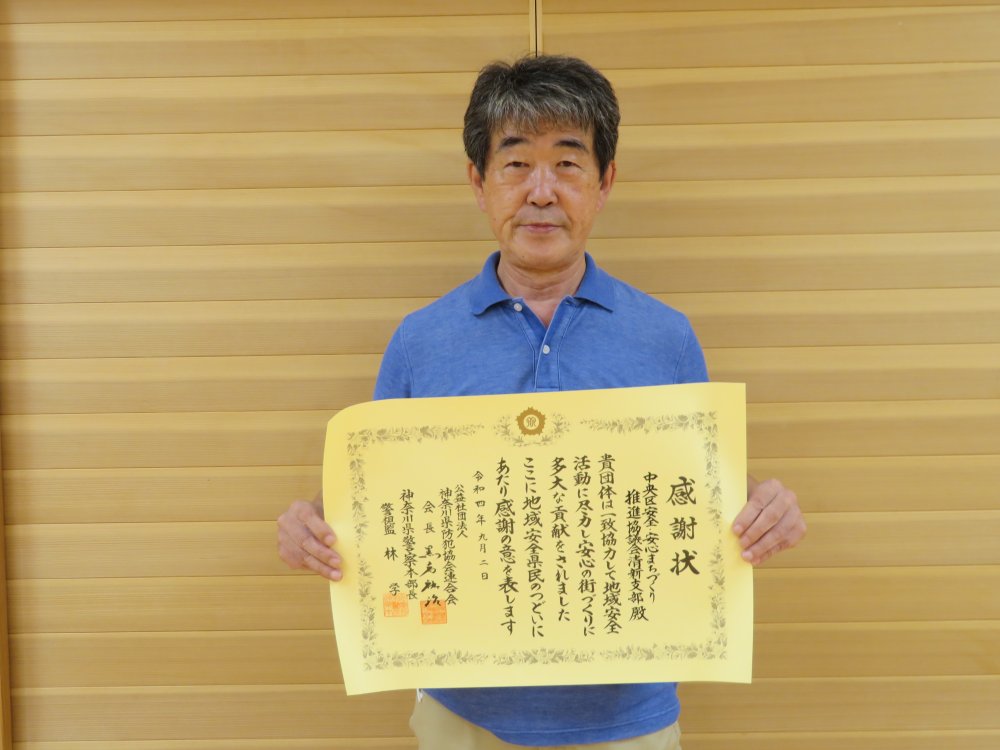 感謝状
中央区安全・安心まちづくり
推進協議会清新支部 殿
貴団体は一致協力して地域安全
活動に尽力し安心の街づくりに
多大な貢献をされました
ここに地域安全県民のつどいに
あたり感謝の意を表します
令和四年九月二日
公益社団法人
神奈川県防犯協会連合会
会長
神奈川県警察本部長
警視監 林 学